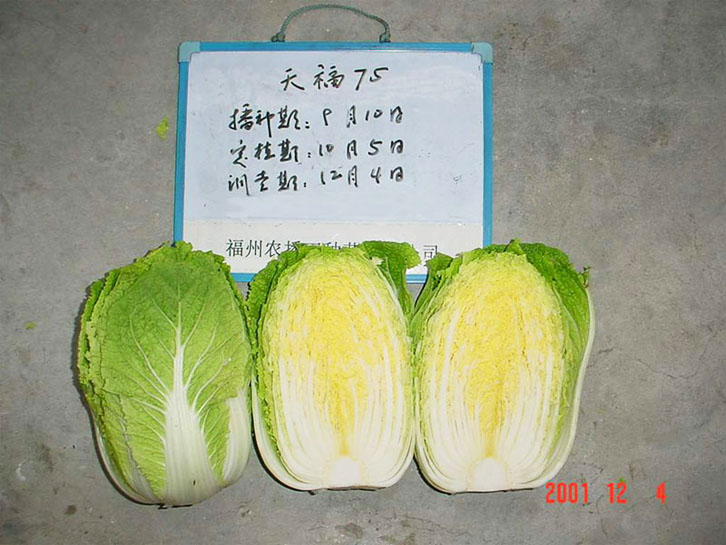 天福75
播种期：9月10日
定植期：10月5日
调查期：12月4日
福州农播 种苗 公司
2001 12 4